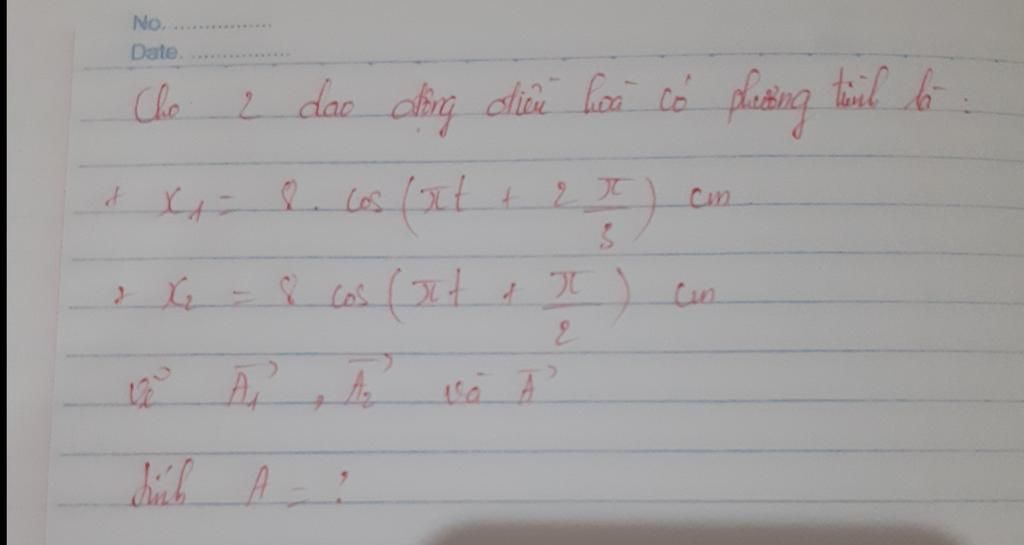 No. ..................
Date. ..................
Cho 2 dao động điều hoà có phương trình là :
+ x₁ = 8 . cos (πt + 2 π/3) cm
+ x₂ = 8 cos (πt + π/2) cm
vẽ A₁⃗ , A₂⃗ và A⃗
tính A = ?